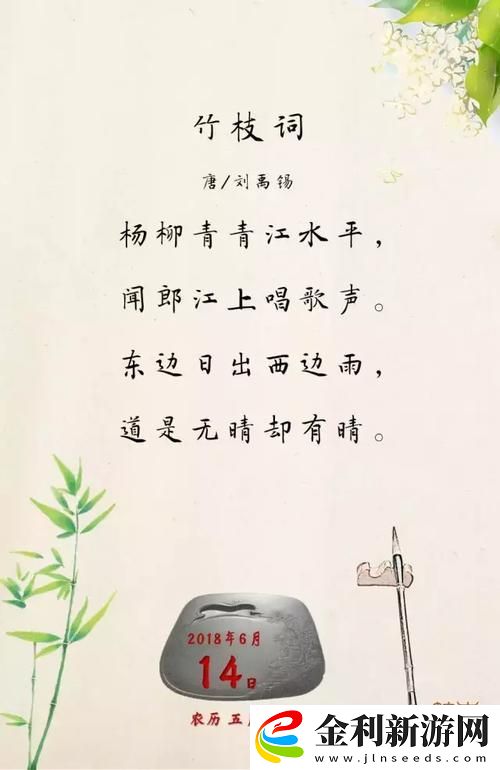 竹枝词
唐/刘禹锡
杨柳青青江水平，
闻郎江上唱歌声。
东边日出西边雨，
道是无晴却有晴。
2018年6月
14日
农历 五
金利新游网
www.jlnseeds.com